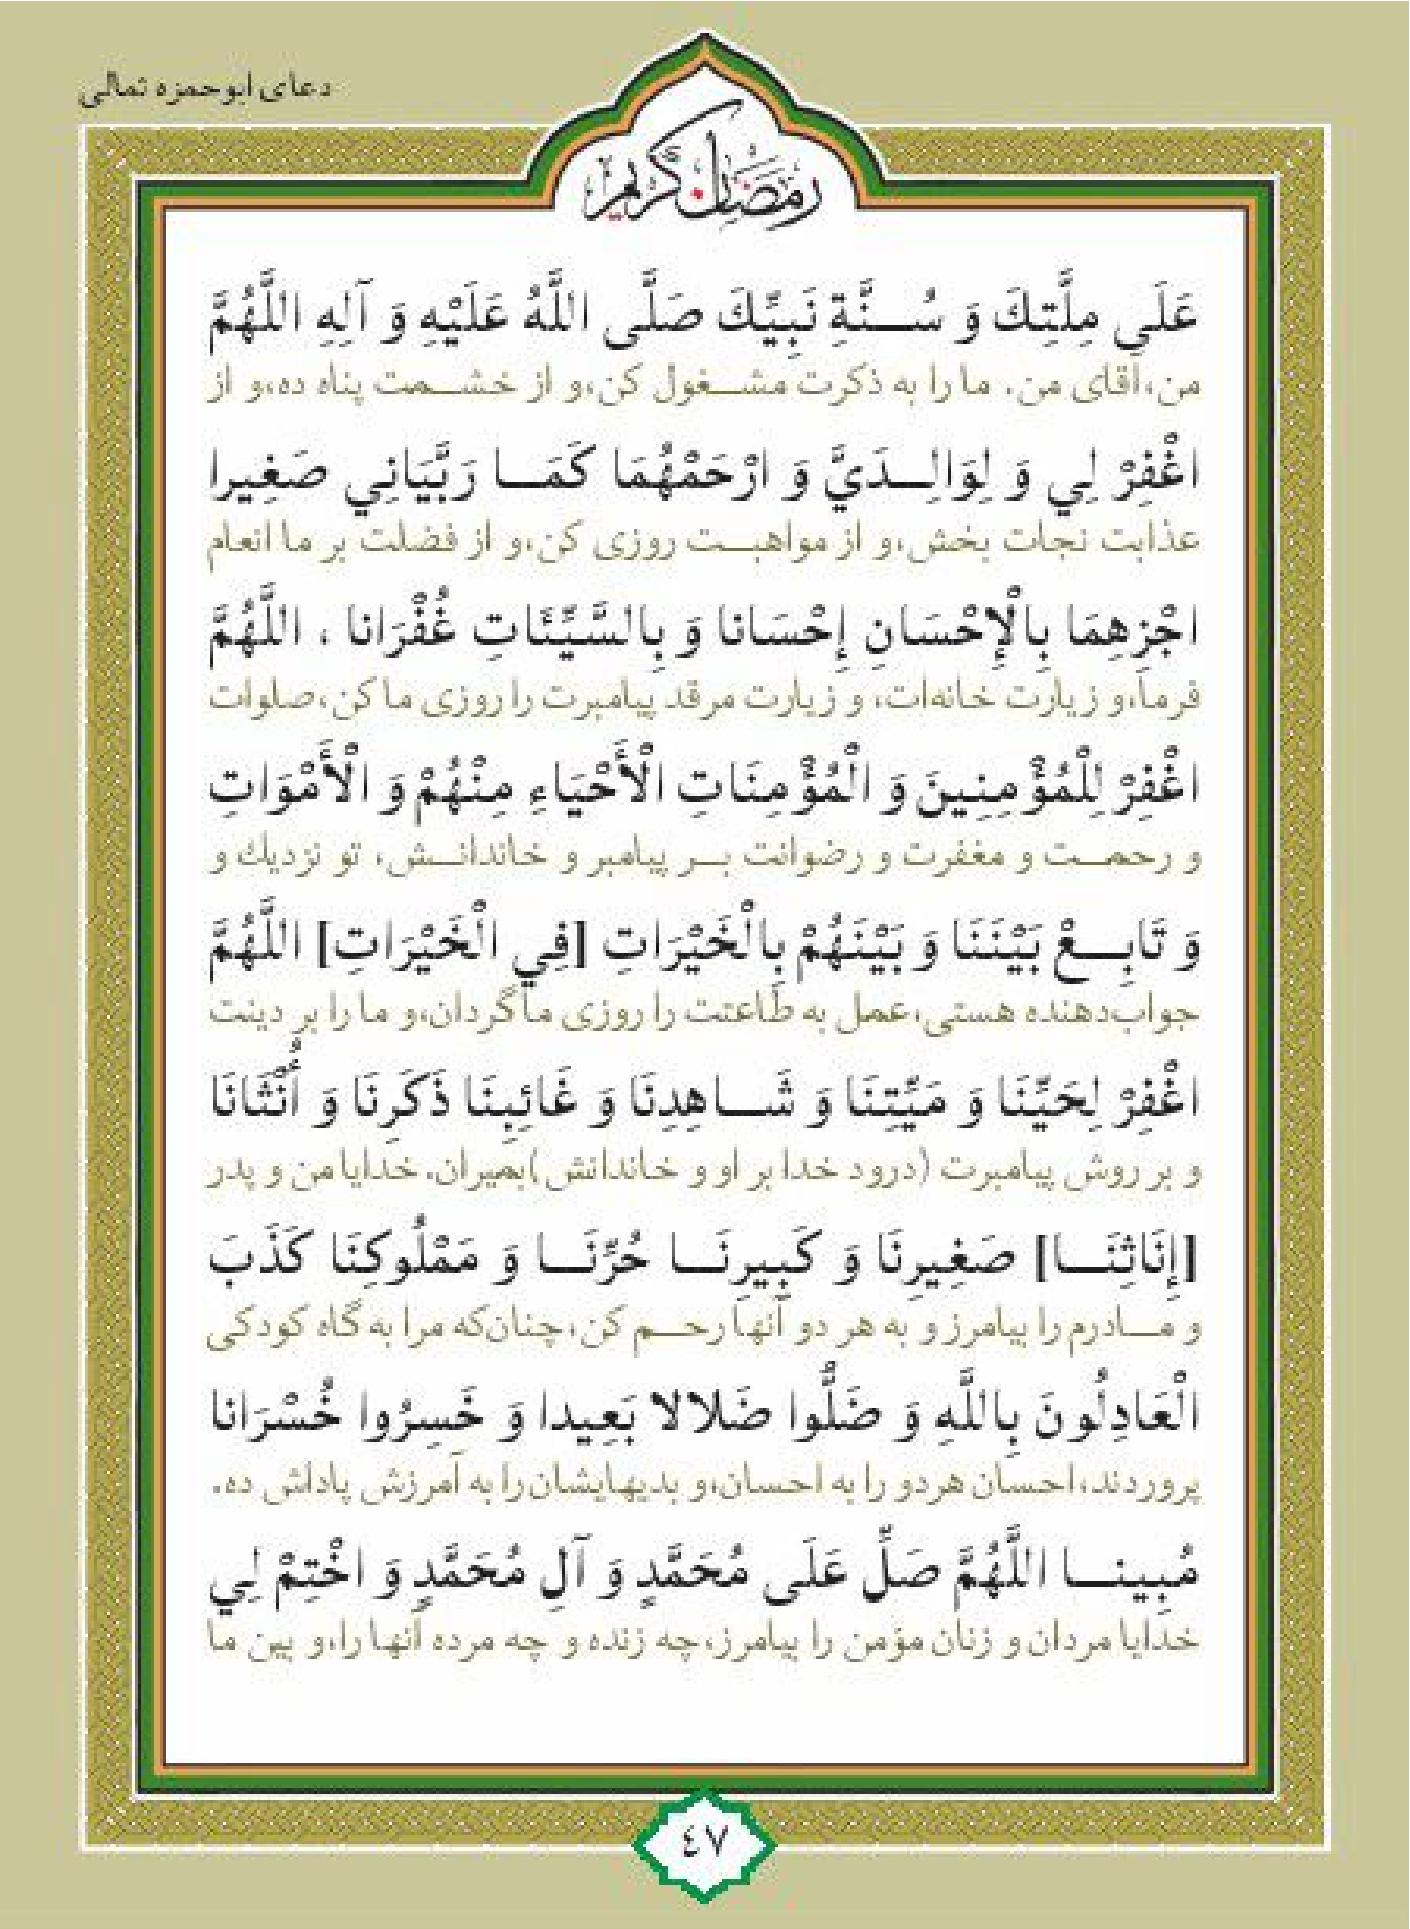 دعای ابوحمزه ثمالی
رمضان کریم
عَلَى مِلَّتِكَ وَ سُنَّةِ نَبِيِّكَ صَلَّى اللَّهُ عَلَيْهِ وَ آلِهِ اللَّهُمَّ
من،آقای من. ما را به ذکرت مشغول کن،و از خشمت پناه ده،و از
اغْفِرْ لِي وَ لِوَالِدَيَّ وَ ارْحَمْهُمَا كَمَا رَبَّيَانِي صَغِيرا
عذابت نجات بخش،و از مواهبت روزی کن،و از فضلت بر ما انعام
اجْزِهِمَا بِالْإِحْسَانِ إِحْسَانا وَ بِالسَّيِّئَاتِ غُفْرَانا ، اللَّهُمَّ
فرما،و زیارت خانه‌ات، و زیارت مرقد پیامبرت را روزی ما کن،صلوات
اغْفِرْ لِلْمُؤْمِنِينَ وَ الْمُؤْمِنَاتِ الْأَحْيَاءِ مِنْهُمْ وَ الْأَمْوَاتِ
و رحمت و مغفرت و رضوانت بر پیامبر و خاندانش، تو نزدیك و
وَ تَابِعْ بَيْنَنَا وَ بَيْنَهُمْ بِالْخَيْرَاتِ [فِي الْخَيْرَاتِ] اللَّهُمَّ
جواب‌دهنده هستی،عمل به طاعتت را روزی ما گردان،و ما را بر دینت
اغْفِرْ لِحَيِّنَا وَ مَيِّتِنَا وَ شَاهِدِنَا وَ غَائِبِنَا ذَكَرِنَا وَ أُنْثَانَا
و بر روش پیامبرت (درود خدا بر او و خاندانش)بمیران. خدایا من و پدر
[إِنَاثِنَا] صَغِيرِنَا وَ كَبِيرِنَا حُرِّنَا وَ مَمْلُوكِنَا كَذَبَ
و مادرم را بیامرز و به هر دو آنها رحم کن، چنان‌که مرا به گاه کودکی
الْعَادِلُونَ بِاللَّهِ وَ ضَلُّوا ضَلالا بَعِيدا وَ خَسِرُوا خُسْرَانا
پروردند،احسان هردو را به احسان،و بدیهایشان را به آمرزش پاداش ده.
مُبِينا اللَّهُمَّ صَلِّ عَلَى مُحَمَّدٍ وَ آلِ مُحَمَّدٍ وَ اخْتِمْ لِي
خدایا مردان و زنان مؤمن را بیامرز،چه زنده و چه مرده آنها را،و بین ما
٤٧